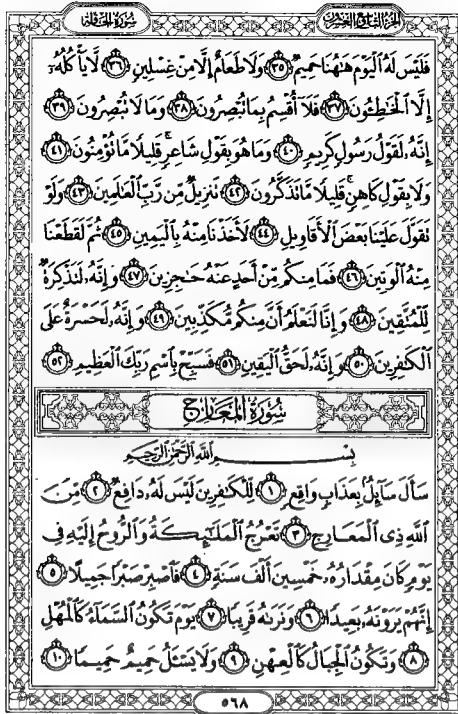 سُورَةُ الحَاقَّةِ
الجُزْءُ التَّاسِعُ وَالعِشْرُونَ
فَلَيْسَ لَهُ الْيَوْمَ هَٰهُنَا حَمِيمٌ ٣٥ وَلَا طَعَامٌ إِلَّا مِنْ غِسْلِينٍ ٣٦ لَّا يَأْكُلُهُۥٓ
إِلَّا الْخَٰطِـُٔونَ ٣٧ فَلَآ أُقْسِمُ بِمَا تُبْصِرُونَ ٣٨ وَمَا لَا تُبْصِرُونَ ٣٩
إِنَّهُۥ لَقَوْلُ رَسُولٍ كَرِيمٍ ٤٠ وَمَا هُوَ بِقَوْلِ شَاعِرٍ ۚ قَلِيلًا مَّا تُؤْمِنُونَ ٤١
وَلَا بِقَوْلِ كَاهِنٍ ۚ قَلِيلًا مَّا تَذَكَّرُونَ ٤٢ تَنزِيلٌ مِّن رَّبِّ الْعَٰلَمِينَ ٤٣ وَلَوْ
تَقَوَّلَ عَلَيْنَا بَعْضَ الْأَقَاوِيلِ ٤٤ لَأَخَذْنَا مِنْهُ بِالْيَمِينِ ٤٥ ثُمَّ لَقَطَعْنَا
مِنْهُ الْوَتِينَ ٤٦ فَمَا مِنكُم مِّنْ أَحَدٍ عَنْهُ حَٰجِزِينَ ٤٧ وَإِنَّهُۥ لَتَذْكِرَةٌ
لِّلْمُتَّقِينَ ٤٨ وَإِنَّا لَنَعْلَمُ أَنَّ مِنكُم مُّكَذِّبِينَ ٤٩ وَإِنَّهُۥ لَحَسْرَةٌ عَلَى
الْكَٰفِرِينَ ٥٠ وَإِنَّهُۥ لَحَقُّ الْيَقِينِ ٥١ فَسَبِّحْ بِاسْمِ رَبِّكَ الْعَظِيمِ ٥٢
سُورَةُ المَعَارِجِ
بِسْمِ اللَّهِ الرَّحْمَٰنِ الرَّحِيمِ
سَأَلَ سَآئِلٌۢ بِعَذَابٍ وَاقِعٍ ١ لِّلْكَٰفِرِينَ لَيْسَ لَهُۥ دَافِعٌ ٢ مِّنَ
اللَّهِ ذِي الْمَعَارِجِ ٣ تَعْرُجُ الْمَلَٰٓئِكَةُ وَالرُّوحُ إِلَيْهِ فِي
يَوْمٍ كَانَ مِقْدَارُهُۥ خَمْسِينَ أَلْفَ سَنَةٍ ٤ فَاصْبِرْ صَبْرًا جَمِيلًا ٥
إِنَّهُمْ يَرَوْنَهُۥ بَعِيدًا ٦ وَنَرَىٰهُ قَرِيبًا ٧ يَوْمَ تَكُونُ السَّمَآءُ كَالْمُهْلِ
٨ وَتَكُونُ الْجِبَالُ كَالْعِهْنِ ٩ وَلَا يَسْـَٔلُ حَمِيمٌ حَمِيمًا ١٠
٥٦٨